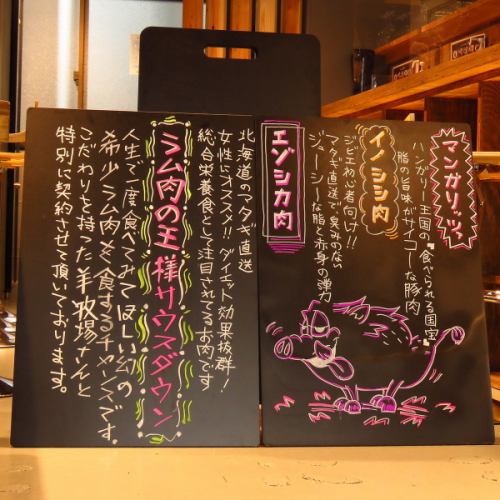 マンガリッツァ
ハンガリー王国の"食べられる国宝"
脂の旨味がサイコーな豚肉
イノシシ肉
ジビエ初心者向け!!
マタギ直送で臭みのない
ジューシーな脂と赤身の弾力
エゾシカ肉
北海道のマタギ直送
女性にオススメ!!ダイエット効果抜群!
総合栄養食として注目されてるお肉です
ラム肉の王様サウスダウン
人生で一度食べてみてほしい幻の
希少ラム肉を食するチャンスです。
こだわりを持った羊牧場さんと
特別に契約させて頂いております。